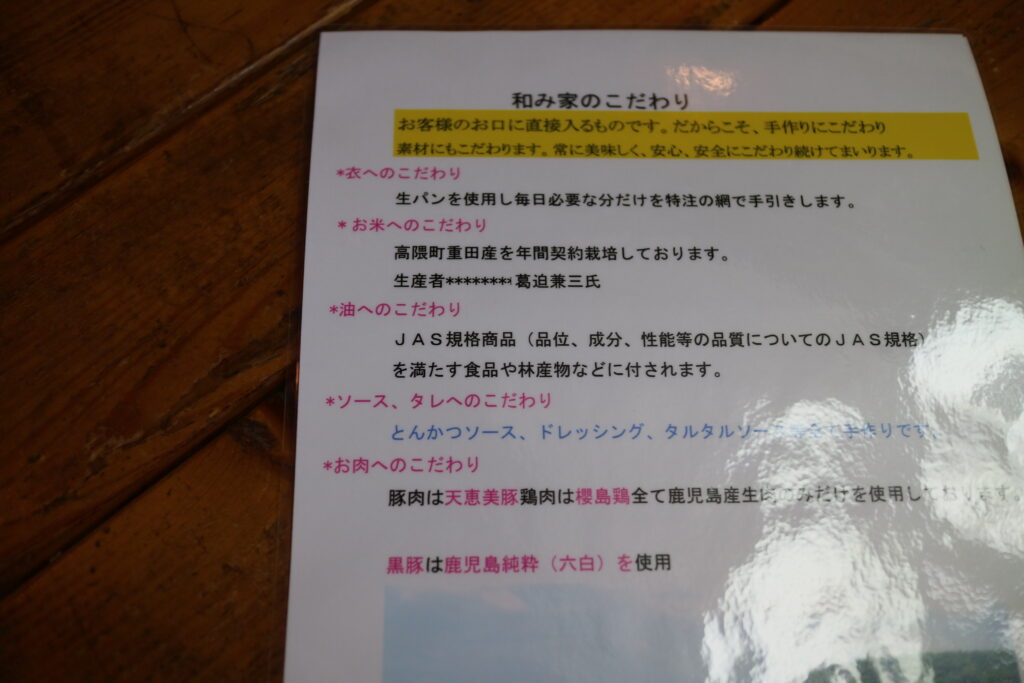 和み家のこだわり
お客様のお口に直接入るものです。だからこそ、手作りにこだわり
素材にもこだわります。常に美味しく、安心、安全にこだわり続けてまいります。
*衣へのこだわり
生パンを使用し毎日必要な分だけを特注の網で手引きします。
*お米へのこだわり
高隈町重田産を年間契約栽培しております。
生産者********葛迫兼三氏
*油へのこだわり
JAS規格商品(品位、成分、性能等の品質についてのJAS規格)
を満たす食品や林産物などに付されます。
*ソース、タレへのこだわり
とんかつソース、ドレッシング、タルタルソース等全て手作りです。
*お肉へのこだわり
豚肉は天恵美豚鶏肉は櫻島鶏全て鹿児島産生肉のみだけを使用しております。
黒豚は鹿児島純粋(六白)を使用